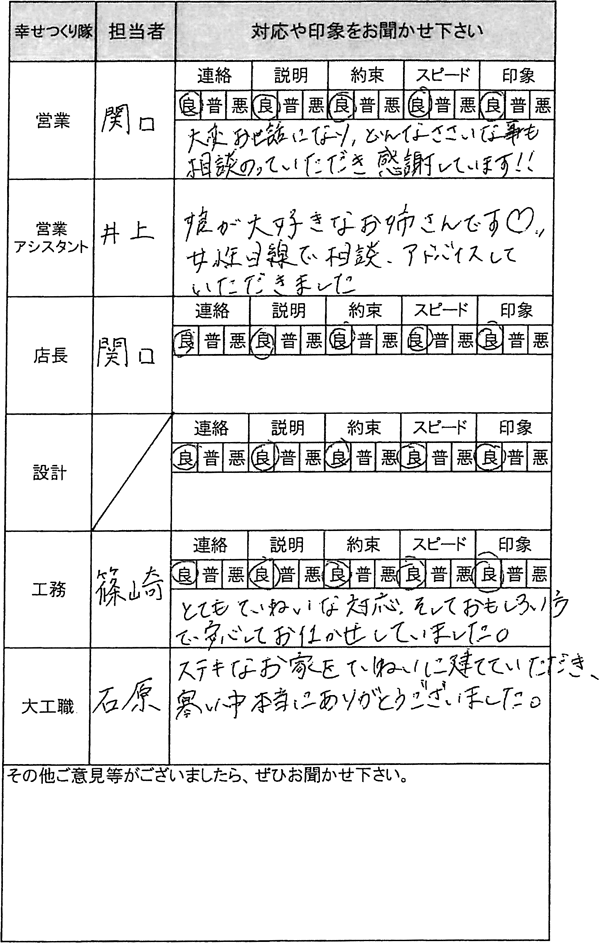 幸せつくり隊 担当者 対応や印象をお聞かせ下さい
連絡 説明 約束 スピード 印象
良 普 悪 良 普 悪 良 普 悪 良 普 悪 良 普 悪
営業 関口
大変お世話になり、どんなささいな事も
相談のっていただき感謝しています!!
営業
アシスタント 井上
娘が大好きなお姉さんです♡
女性目線で相談、アドバイスして
いただきました
連絡 説明 約束 スピード 印象
良 普 悪 良 普 悪 良 普 悪 良 普 悪 良 普 悪
店長 関口
連絡 説明 約束 スピード 印象
良 普 悪 良 普 悪 良 普 悪 良 普 悪 良 普 悪
設計
連絡 説明 約束 スピード 印象
良 普 悪 良 普 悪 良 普 悪 良 普 悪 良 普 悪
工務 篠崎
とてもていねいな対応、そしておもしろい方
で安心してお任せしていました。
大工職 石原
ステキなお家をていねいに建てていただき、
寒い中本当にありがとうございました。
その他ご意見等がございましたら、ぜひお聞かせ下さい。